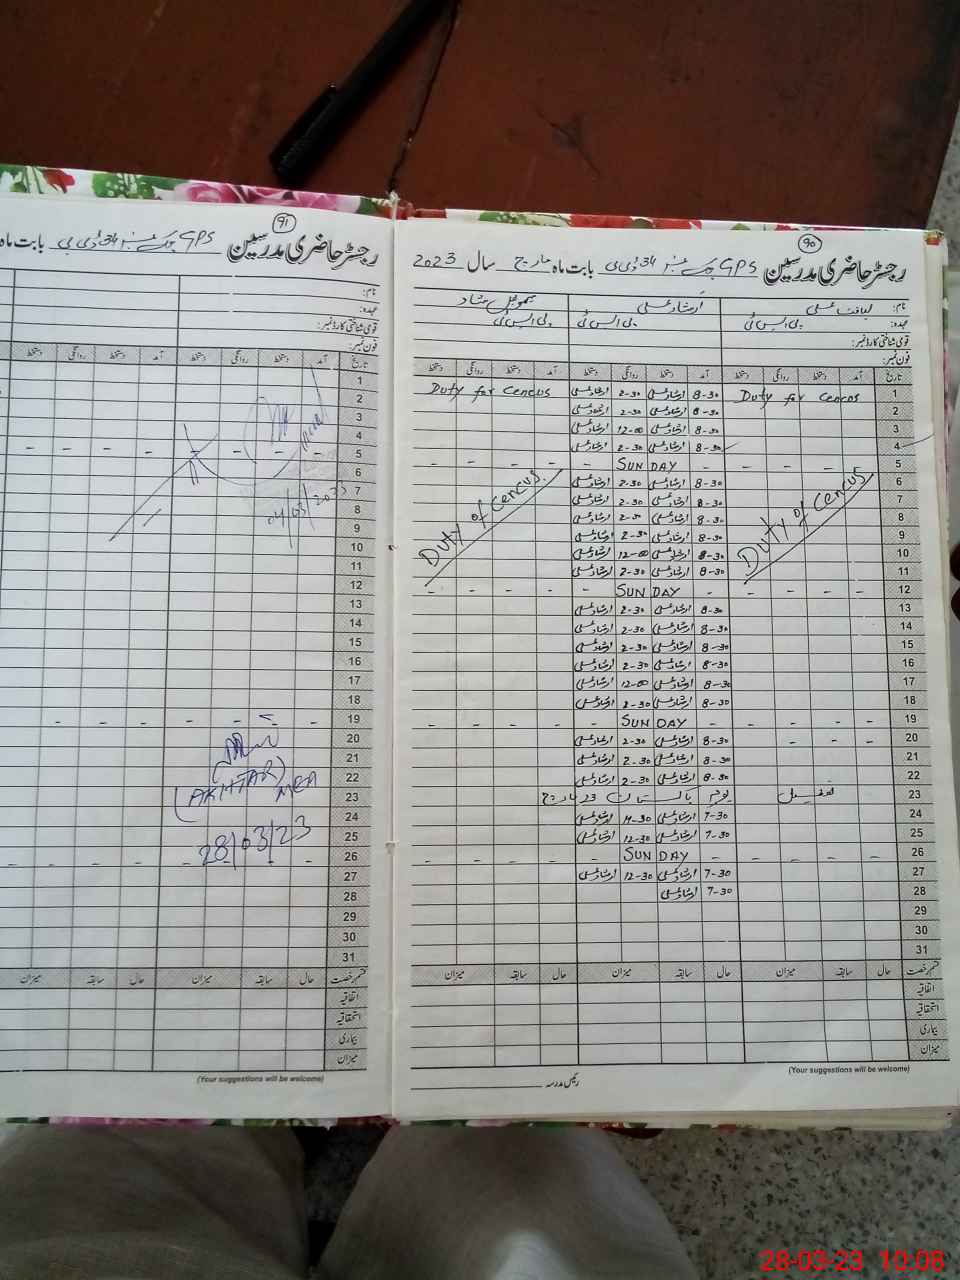 90
رجسٹر حاضری مدرسین GPS چک نمبر 34 ڈی بی بابت ماہ مارچ سال 2023
نام: لیاقت علی ارشاد علی
عہدہ: پی ایس ٹی پی ایس ٹی پی ایس ٹی
قومی شناختی کارڈ نمبر:
فون نمبر:
تاریخ آمد دستخط روانگی دستخط آمد دستخط روانگی دستخط آمد دستخط روانگی دستخط
1 Duty for Cencus 8-30 ارشاد علی 2-30 ارشاد علی Duty for Cencus
2 8-30 ارشاد علی 2-30 ارشاد علی
3 8-30 ارشاد علی 12-00 ارشاد علی
4 8-30 ارشاد علی 2-30 ارشاد علی
5 - - - - - SUNDAY - - - - -
6 8-30 ارشاد علی 2-30 ارشاد علی
7 8-30 ارشاد علی 2-30 ارشاد علی
8 8-30 ارشاد علی 2-30 ارشاد علی
Duty of Cencus. Duty of Cencus.
9 8-30 ارشاد علی 2-30 ارشاد علی
10 8-30 ارشاد علی 12-00 ارشاد علی
11 8-30 ارشاد علی 2-30 ارشاد علی
12 - - - - - SUNDAY - - - - -
13 8-30 ارشاد علی 2-30 ارشاد علی
14 8-30 ارشاد علی 2-30 ارشاد علی
15 8-30 ارشاد علی 2-30 ارشاد علی
16 8-30 ارشاد علی 2-30 ارشاد علی
17 8-30 ارشاد علی 12-00 ارشاد علی
18 8-30 ارشاد علی 2-30 ارشاد علی
19 - - - - - SUNDAY - - - - -
20 - - - 8-30 ارشاد علی 2-30 ارشاد علی
21 8-30 ارشاد علی 2-30 ارشاد علی
22 8-30 ارشاد علی 2-30 ارشاد علی
23 تعطیل یوم پاکستان 23 مارچ
24 7-30 ارشاد علی ارشاد علی
25 7-30 ارشاد علی 12-30 ارشاد علی
26 - - - - - SUNDAY - - - - -
27 7-30 ارشاد علی 12-30 ارشاد علی
28 7-30 ارشاد علی
29
30
31
قسم رخصت حال سابقہ میزان حال سابقہ میزان حال سابقہ میزان
اتفاقیہ
استحقاقیہ
بیماری
میزان
(Your suggestions will be welcome)
رئیس مدرسہ
91
رجسٹر حاضری مدرسین GPS چک نمبر 34 ڈی بی بابت ماہ
نام:
عہدہ:
قومی شناختی کارڈ نمبر:
فون نمبر:
تاریخ آمد دستخط روانگی دستخط آمد دستخط روانگی دستخط
1
2
3
4
5
6
7
04/03/2023
8
9
10
11
12
13
14
15
16
17
18
19
20
21
22
(AKHTAR)
MEA
23
24
25
28/03/23
26
27
28
29
30
31
قسم رخصت حال سابقہ میزان حال سابقہ میزان
اتفاقیہ
استحقاقیہ
بیماری
میزان
(Your suggestions will be welcome)
28-03-23 10:08